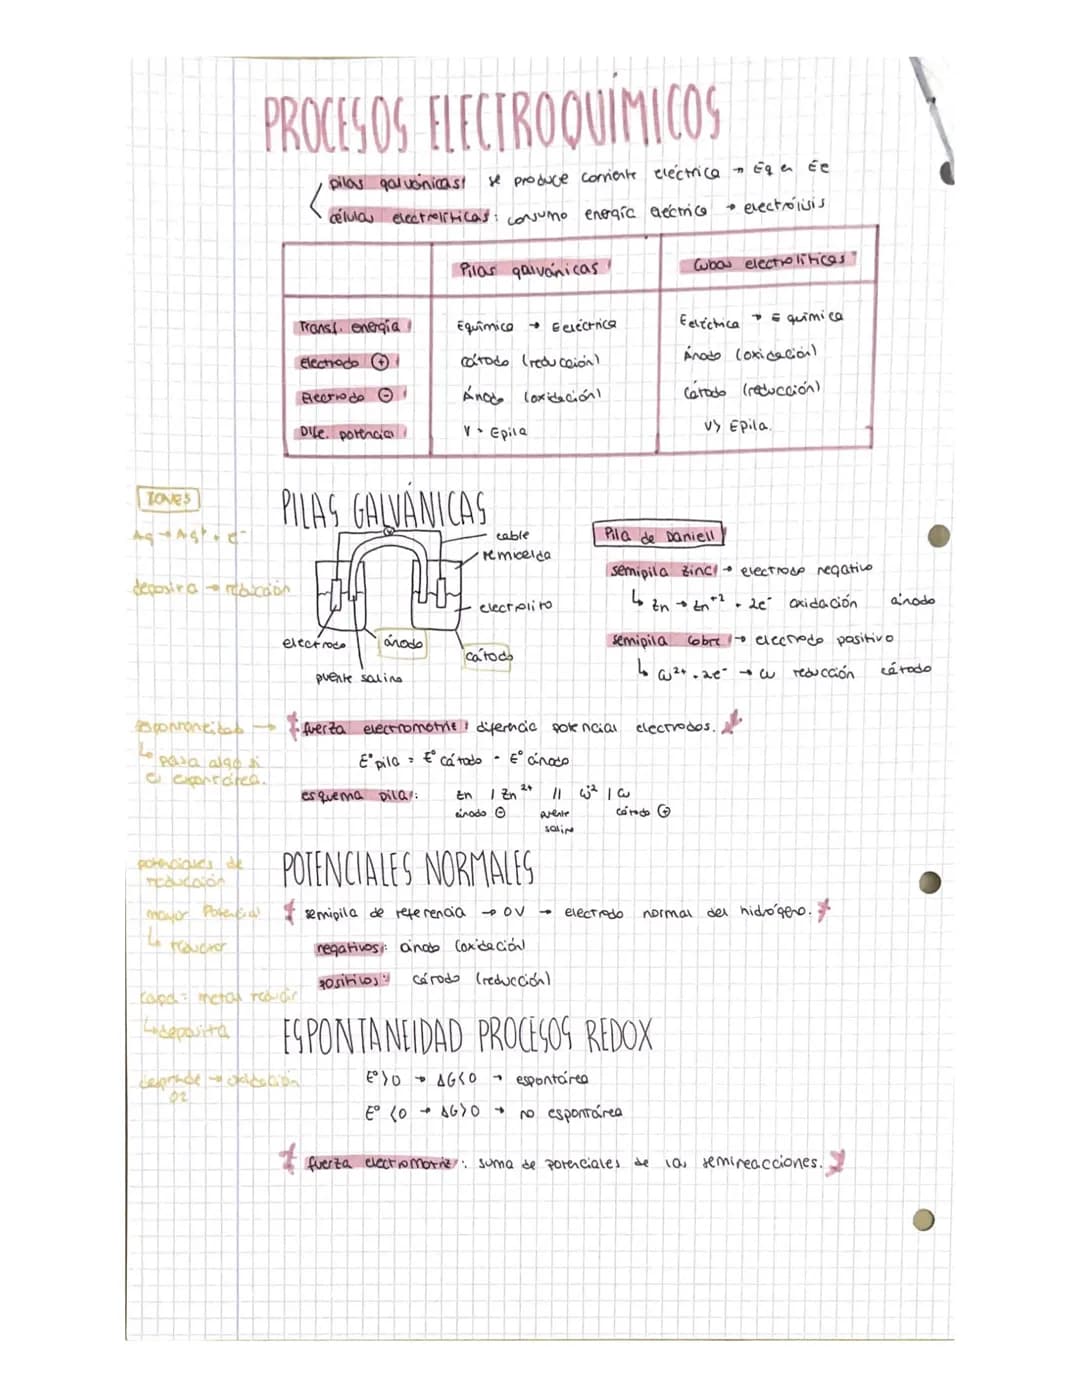 PROCESOS ELECTROQUÍMICOS
pilas galvánicas: se produce corriente eléctrica → Eq en Ee
células electrolíticas: consumo energía eléctrica → electrólisis
Pilas galvánicas
Cubas electrolíticas
Transf. energía
Equímica → Eeléctrica
Eeléctrica → E química
electrodo ⊕
cátodo (reducción)
Ánodo (oxidación)
Electrodo ⊖
Ánodo (oxidación)
Cátodo (reducción)
Dife. potencial
V = Epila
V> Epila.
IONES
Ag → Ag⁺ + e⁻
deposita → reducción
PILAS GALVÁNICAS
cable
semicelda
electrolito
electrodo
ánodo
cátodo
puente salino
Pila de Daniell
semipila zinc → electrodo negativo
↳ Zn → Zn⁺² + 2e⁻ oxidación ánodo
semipila cobre → electrodo positivo
↳ Cu²⁺ + 2e⁻ → Cu reducción cátodo
Espontaneidad →
↳ pasa algo si
es espontánea.
* fuerza electromotriz: diferencia potencial electrodos. *
E°pila = E° cátodo - E° ánodo
esquema pila: Zn | Zn²⁺ || Cu² | Cu
ánodo ⊖ puente salino cátodo ⊕
potenciales de
reducción
mayor Potencial
↳ reductor
capa = metal reducir
↳ deposita
desprende → oxidación
O2
POTENCIALES NORMALES
* semipila de referencia → 0V → electrodo normal del hidrógeno. *
negativos: ánodo (oxidación)
positivos: cátodo (reducción)
ESPONTANEIDAD PROCESOS REDOX
E°>0 → ΔG<0 → espontánea
E° <0 → ΔG>0 → no espontánea
* fuerza electromotriz: suma de potenciales de las semireacciones. *